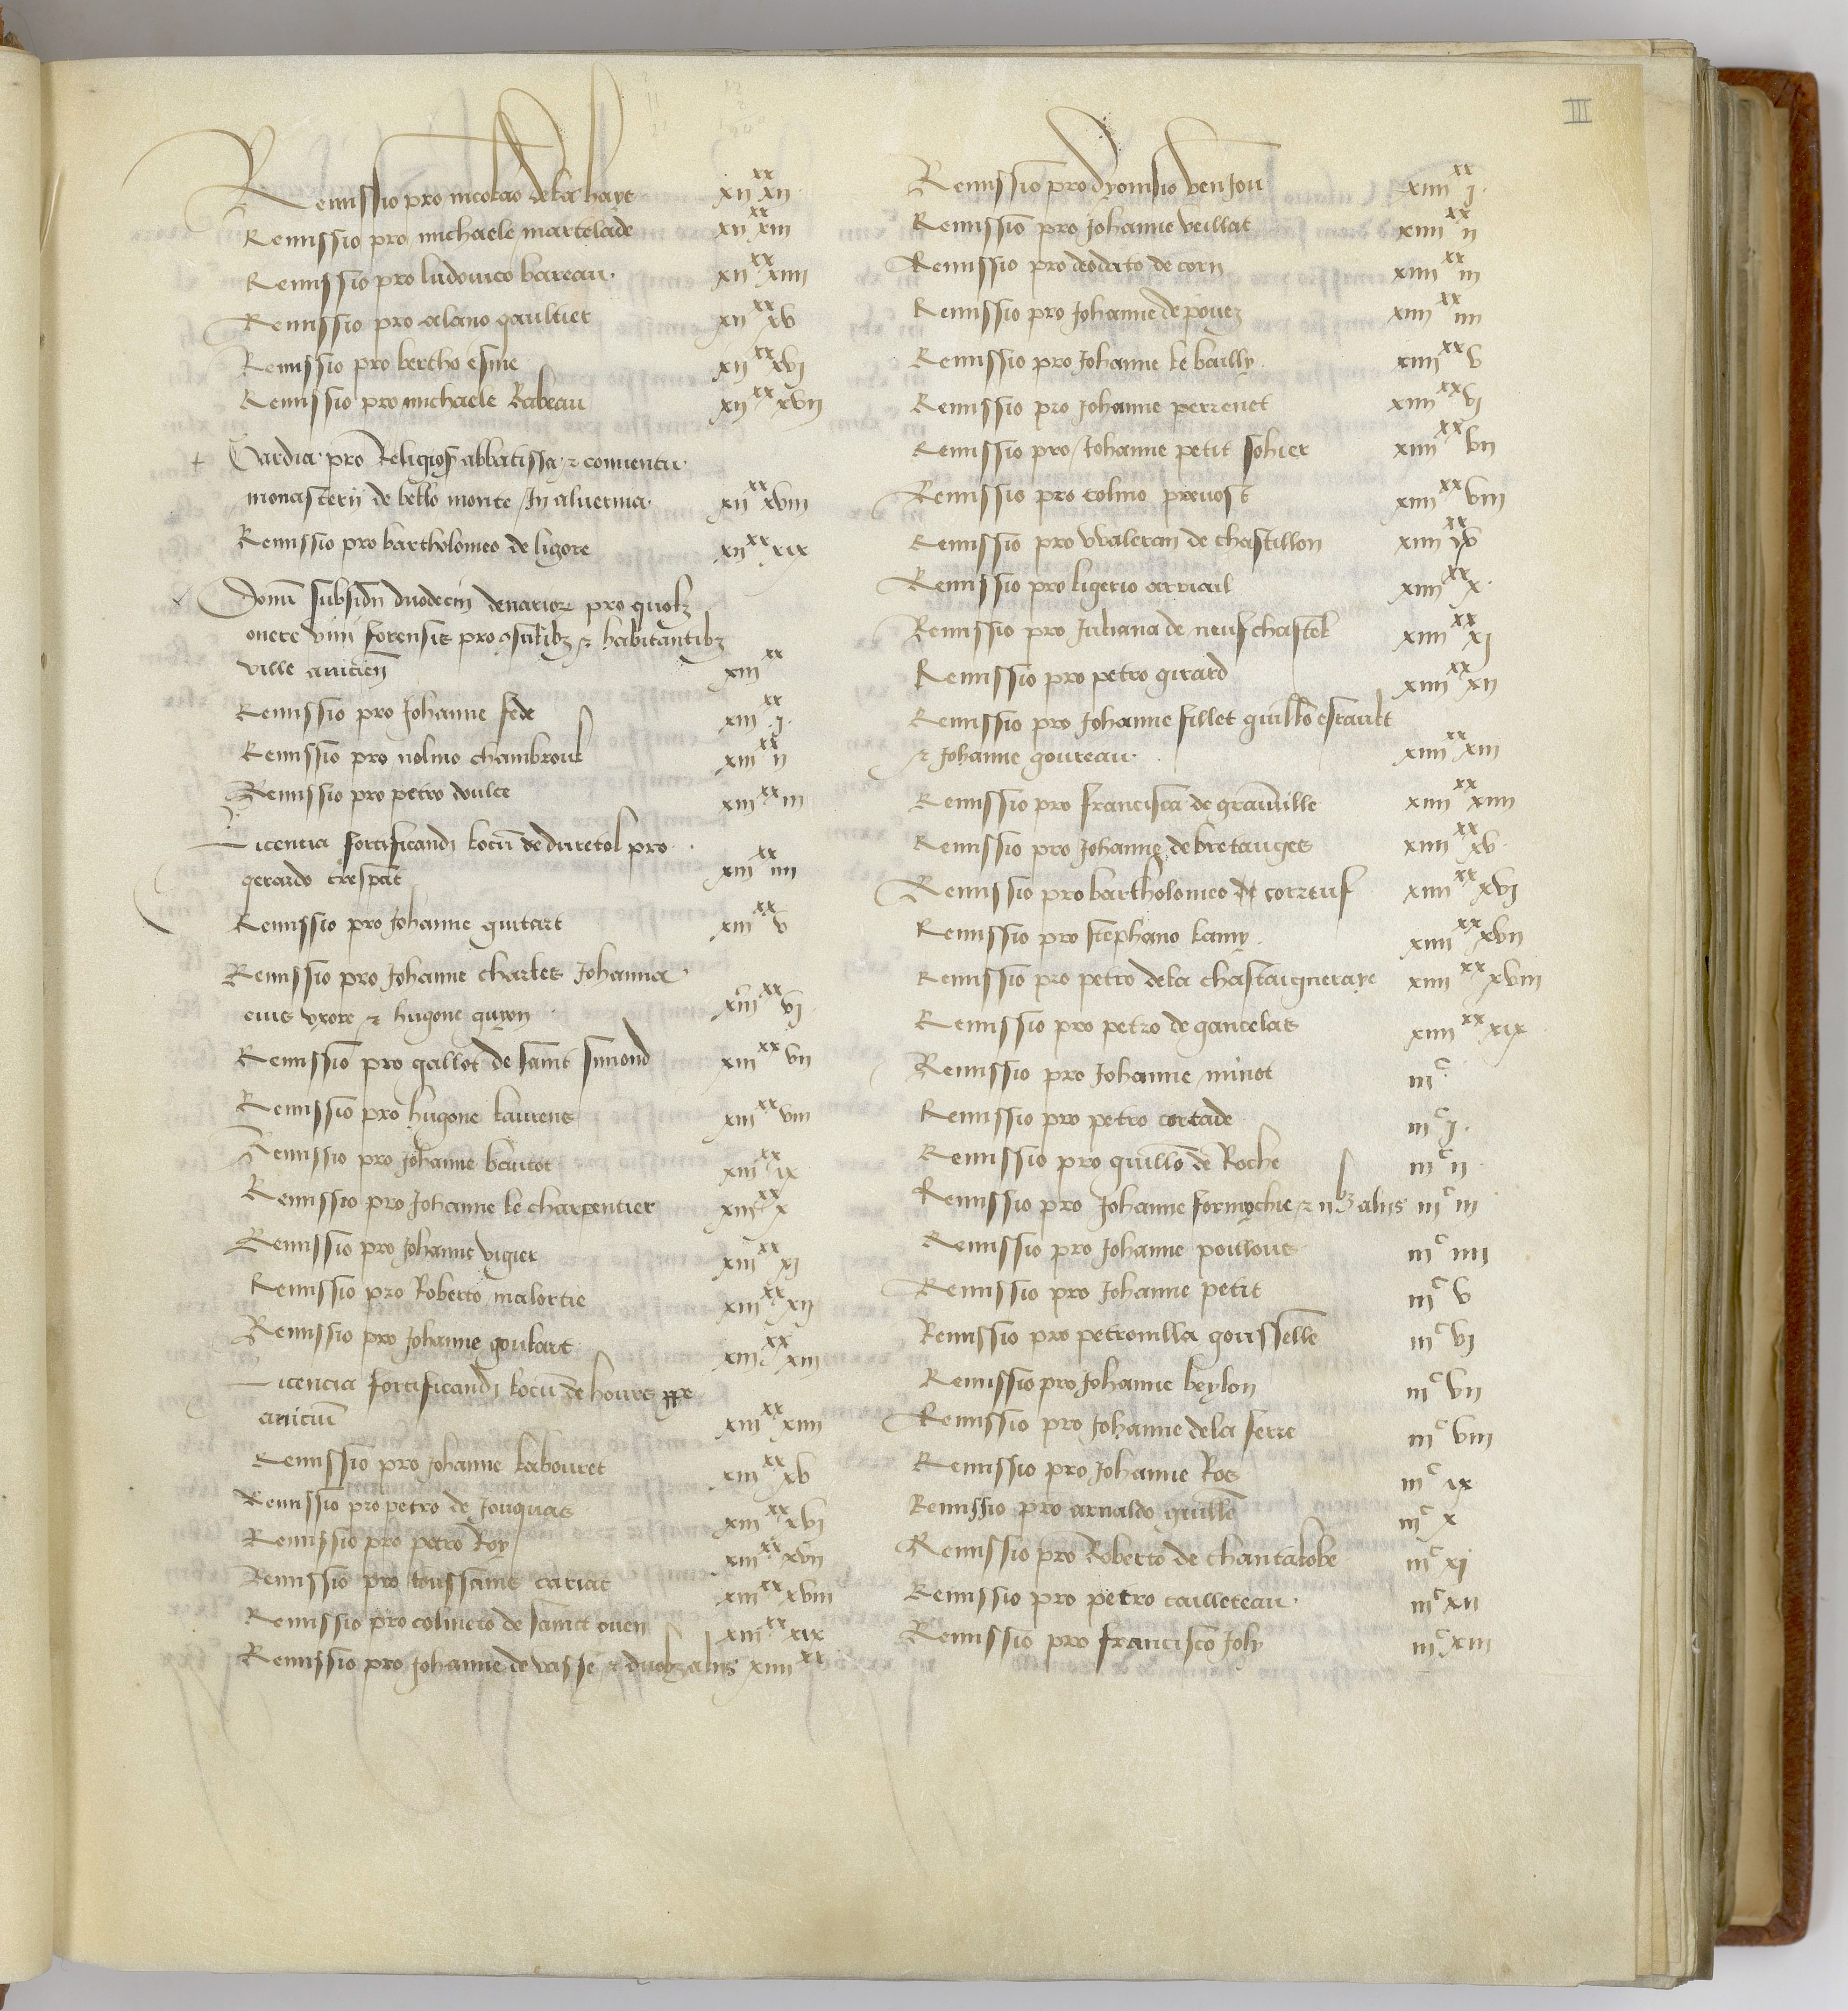 III
Remissio pro nicolao dela haye xii xx xii
Remissio pro michaele martelade xii xx xiii
Remissio pro ludovico bareau xii xx xiiii
Remissio pro alano gaultier xii xx xv
Remissio pro bertho esme xii xx xvi
Remissio pro michaele Rabeau xii xx xvii
+ Gardia pro Religios abbatissa et conventu
monasterii de bello monte In alvernia xii xx xviii
Remissio pro bartholomeo de ligore xii xx xix
Donum subsidii duodecim denarior pro quolz
onere vini forensis pro consulibz et habitantibz
ville anicien xiii xx
Remissio pro Johanne fede xiii xx i
Remissio pro nolino chambrout xiii xx ii
Remissio pro petro doulce xiii xx iii
Licencia fortificandi locum de duretol pro
gerardo crespat xiii xx iiii
Remissio pro Johanne guitart xiii xx v
Remissio pro Johanne charles Johanna
eius uxore et hugone guyon xiii xx vi
Remissio pro gallot de sainct simond xiii xx vii
Remissio pro hugone laurens xiii xx viii
Remissio pro Johanne bautot xiii xx ix
Remissio pro Johanne le charpentier xiii xx x
Remissio pro Johanne vigier xiii xx xi
Remissio pro Roberto malortie xiii xx xii
Remissio pro Johanne goulart xiii xx xiii
Licencia fortificandi locum de hours ppe
anicium xiii xx xiiii
Remissio pro Johanne labouret xiii xx xv
Remissio pro petro de Jouquas xiii xx xvi
Remissio pro petro Roy xiii xx xvii
Remissio pro toussains cariat xiii xx xviii
Remissio pro colineto de sainct ouen xiii xx xix
Remissio pro Johanne de vasse et duobz aliis xiiii xx
Remissio pro dyonisio venjou xiiii xx i
Remissio pro Johanne veillat xiiii xx ii
Remissio pro deodato de corn xiiii xx iii
Remissio pro Johanne de pouez xiiii xx iiii
Remissio pro Johanne le bailly xiiii xx v
Remissio pro Johanne perrenet xiiii xx vi
Remissio pro Johanne petit sohier xiiii xx vii
Remissio pro colino prevost xiiii xx viii
Remissio pro Waleran de chastillon xiiii xx ix
Remissio pro ligerio arviail xiiii xx x
Remissio pro Juliana de neufchastel xiiii xx xi
Remissio pro petro girard xiiii xx xii
Remissio pro Johanne fillet guillo estault
et Johanne goureau xiiii xx xiii
Remissio pro francisca de grainville xiiii xx xiiii
Remissio pro Johanne de bretauges xiiii xx xv
Remissio pro bartholomeo de correuf xiiii xx xvi
Remissio pro stephano lamy xiiii xx xvii
Remissio pro petro dela chastaigneraye xiiii xx xviii
Remissio pro petro de gancelas xiiii xx xix
Remissio pro Johanne minot iii c
Remissio pro petro cortade iii c i
Remissio pro guillo de Roche iii c ii
Remissio pro Johanne formychie et iibz aliis iii c iii
Remissio pro Johanne poillous iii c iiii
Remissio pro Johanne petit iii c v
Remissio pro petronilla gousselle iii c vi
Remissio pro Johanne beylon iii c vii
Remissio pro Johanne dela serre iii c viii
Remissio pro Johanne Ros iii c ix
Remissio pro arnaldo guillo iii c x
Remissio pro Roberto de chantalobe iii c xi
Remissio pro petro cailleteau iii c xii
Remissio pro francisco Joly iii c xiii